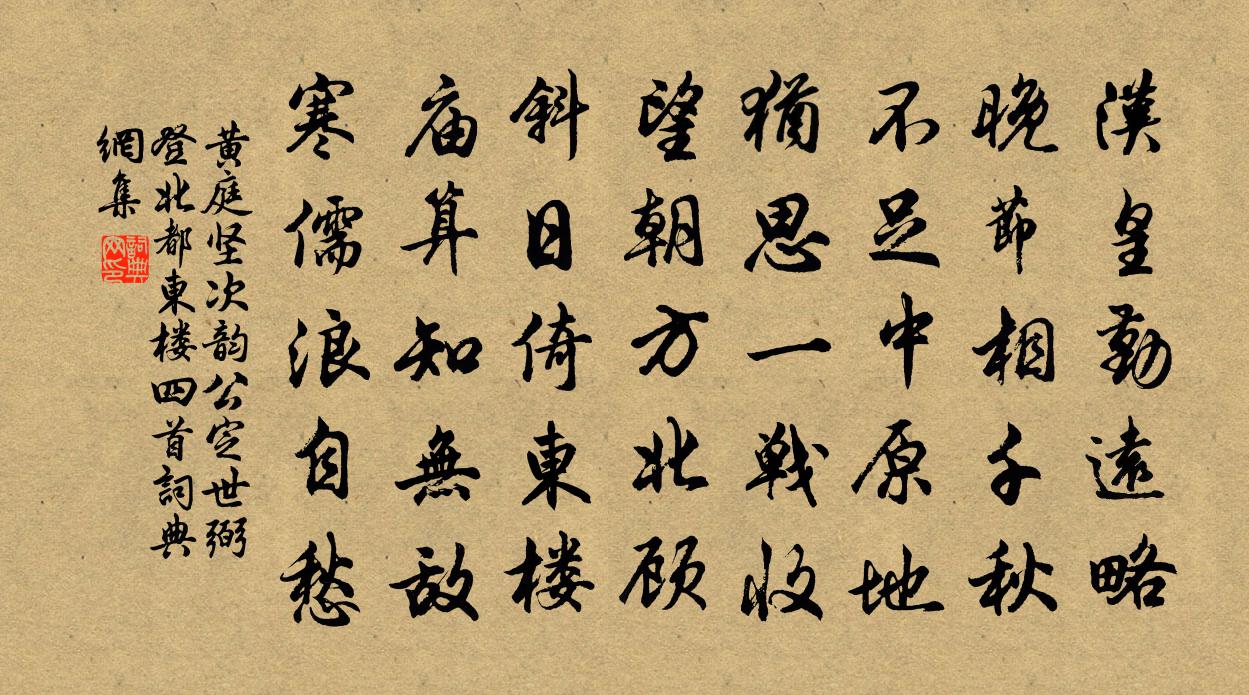 漢皇勤遠略
晚節相千秋
不足中原地
猶思一戰收
望朝方北顾
斜日倚東楼
庙算知無敌
寒儒浪自愁
黄庭坚次韵公定世弼
登北都東楼四首詞典
網集
詞典
网印